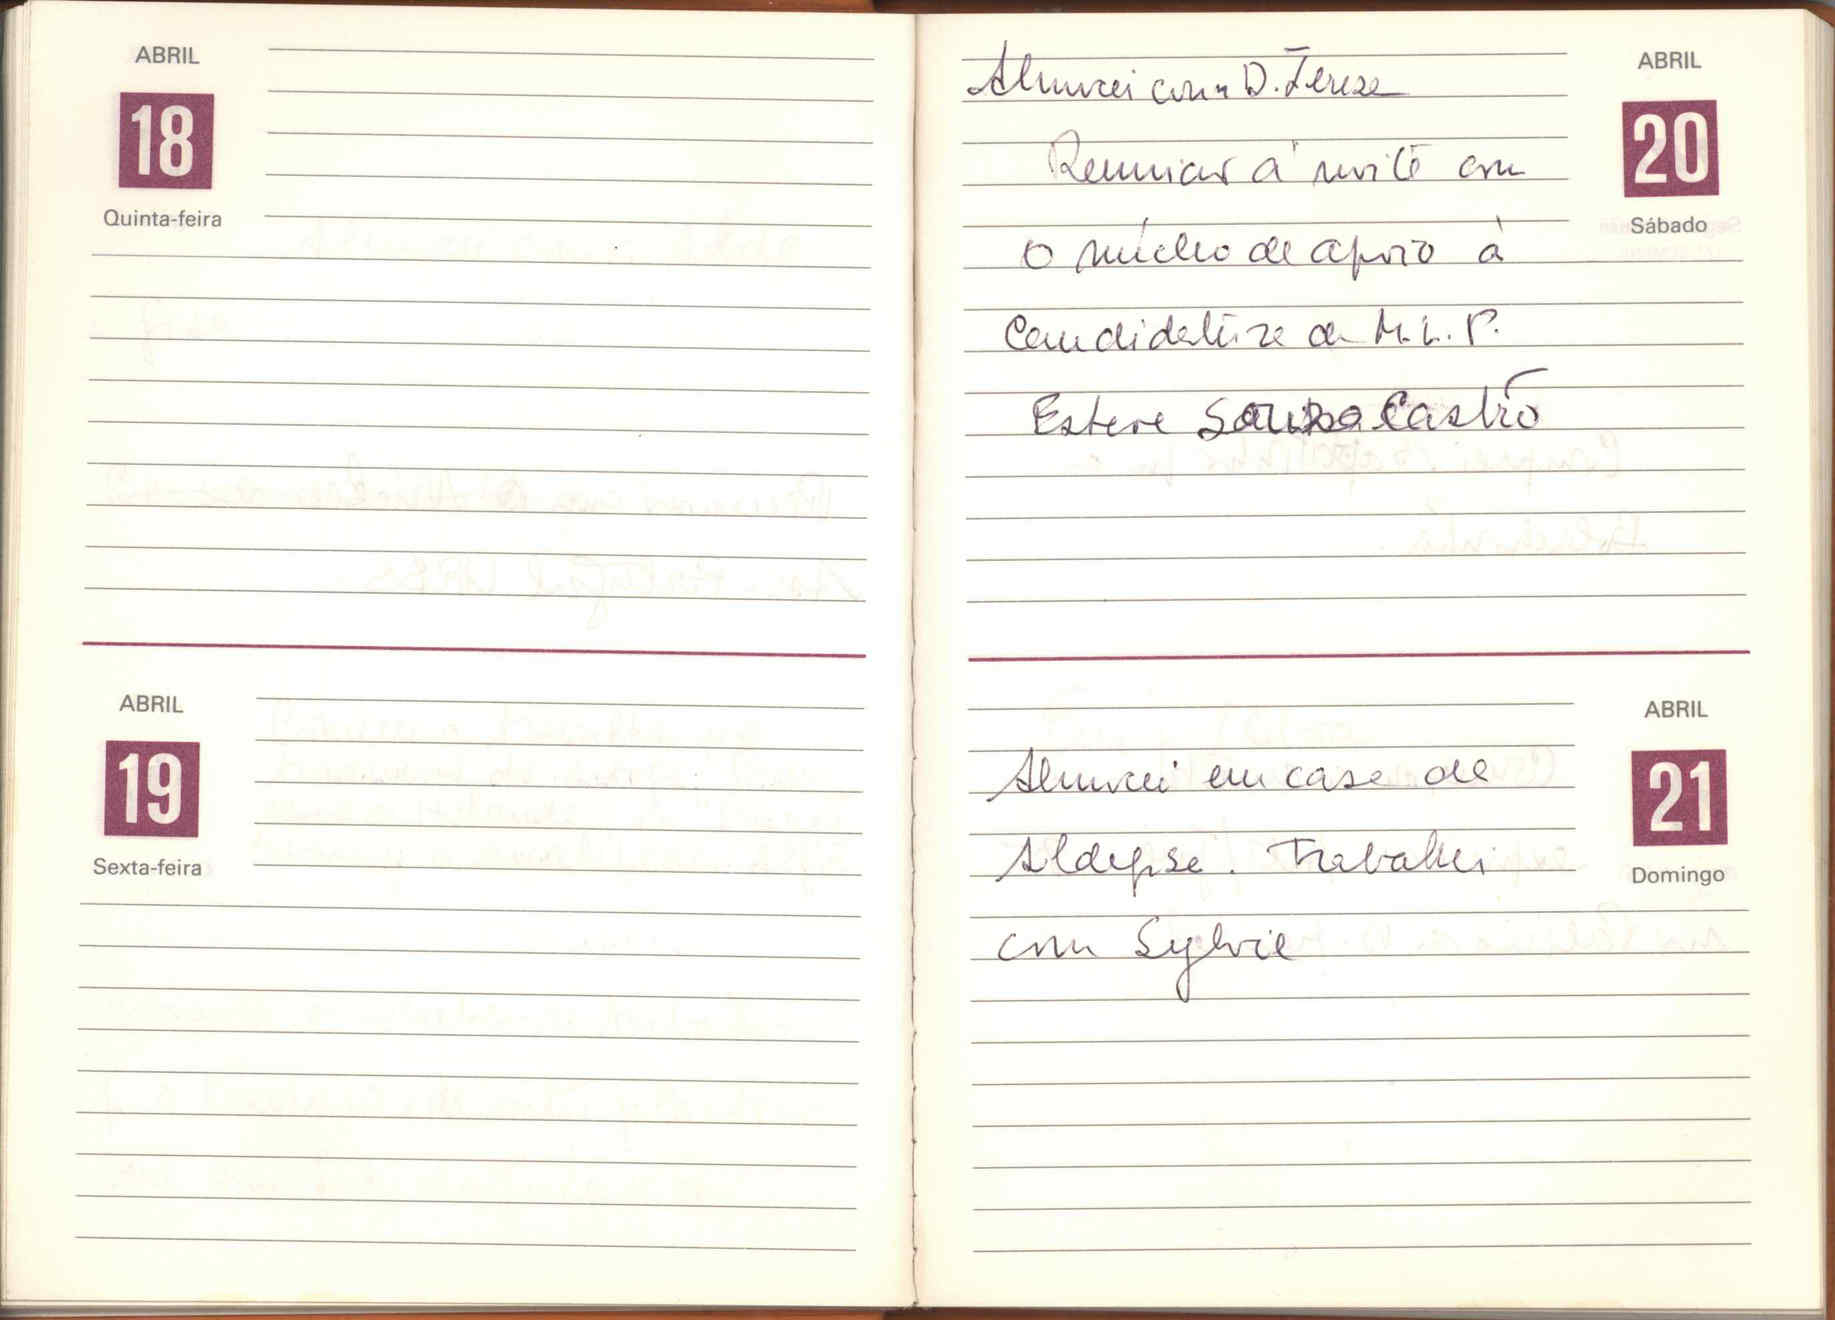 ABRIL
18
Quinta-feira
ABRIL
19
Sexta-feira
ABRIL
20
Sábado
Almocei com D. Tereza
Reunião à noite com
o núcleo de apoio à
Candidatura de M. L. P.
Esteve Sousa Castro
ABRIL
21
Domingo
Almocei em casa de
. Trabalhei
com Sylvie